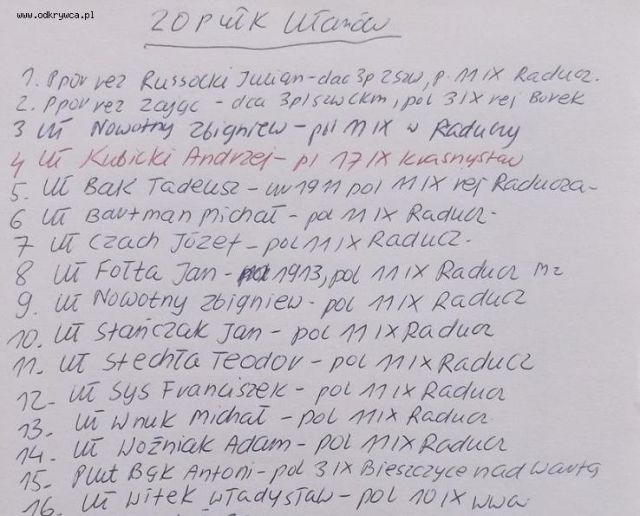 www.odkrywca.pl
20 Pułk Ułanów
1. Ppor rez Russocki Julian - dca 3pl 2szw, p. 11 IX Raducz.
2. Ppor rez Zając - dca 3pl szw ckm, pol 3 IX rej Burek
3 Uł Nowotny Zbigniew - pol 11 IX w Raduczy
4 Uł Kubicki Andrzej - pl 17 IX Krasnystaw
5. Uł Bąk Tadeusz - ur 1911 pol 11 IX rej Raducza -
6 Uł Bartman Michał - pol 11 IX Raducz -
7 Uł Czach Józef - pol 11 IX Raducz.
8 Uł Fołta Jan - 1913, pol 11 IX Raducz
9. Uł Nowotny Zbigniew - pol 11 IX Raducz
10. Uł Stańczak Jan - pol 11 IX Raducz
11. Uł Stechła Teodor - pol 11 IX Raducz
12. Uł Sys Franciszek - pol 11 IX Raducz
13. Uł Wnuk Michał - pol 11 IX Raducz
14. Uł Woźniak Adam - pol 11 IX Raducz
15. Plut Bąk Antoni - pol 3 IX Bieszczyce nad Wartą
16. Uł Witek Władysław - pol 10 IX Wwa